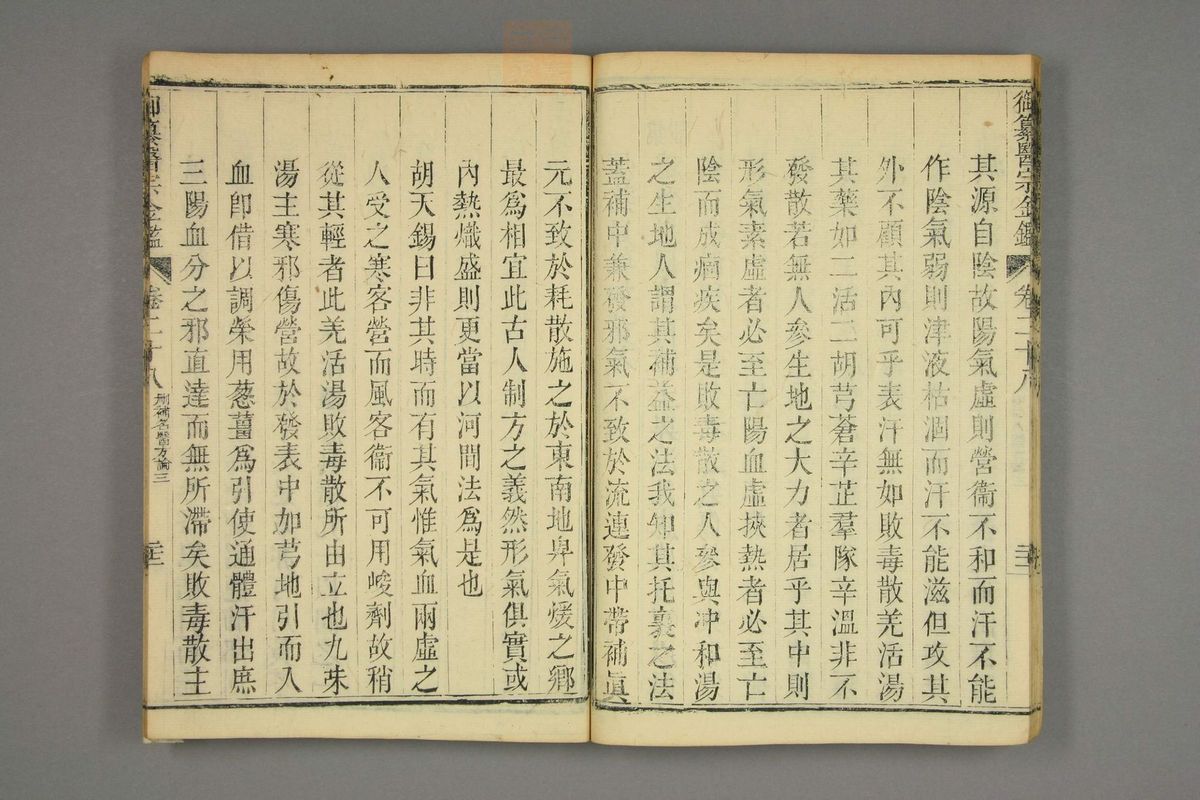 御纂醫宗金鑑 卷二十八
其源自陰故陽氣虛則營衞不和而汗不能
作陰氣弱則津液枯涸而汗不能滋但攻其
外不顧其內可乎表汗無如敗毒散羌活湯
其藥如二活二胡芎蒼辛芷羣隊辛溫非不
發散若無人參生地之大力者居乎其中則
形氣素虛者必至亡陽血虛挾熱者必至亡
陰而成痼疾矣是敗毒散之人參與冲和湯
之生地人謂其補益之法我知其托裏之法
蓋補中兼發邪氣不致於流連發中帶補眞
元不致於耗散施之於東南地卑氣煖之鄉
最爲相宜此古人制方之義然形氣俱實或
內熱熾盛則更當以河間法爲是也
胡天錫曰非其時而有其氣惟氣血兩虛之
人受之寒客營而風客衞不可用峻劑故稍
從其輕者此羌活湯敗毒散所由立也九味
湯主寒邪傷營故於發表中加芎地引而入
血卽借以調榮用葱薑爲引使通體汗出庶
三陽血分之邪直達而無所滯矣敗毒散主
御纂醫宗金鑑 卷二十八 刪補名醫方論三